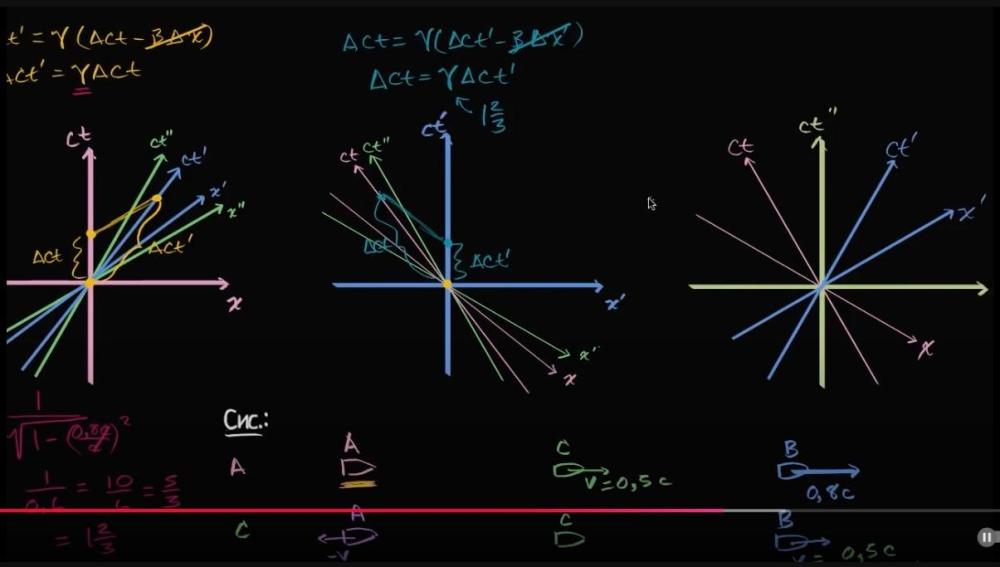 t' = γ(Δct - βΔx)
Δct' = γΔct
Δct = γ(Δct' - βΔx')
Δct = γΔct'
1 2/3
ct
ct''
ct'
x'
x''
Δct
Δct'
x
ct'
ct
ct''
Δct
Δct'
x'
x''
x
ct''
ct
ct'
x'
x
1/√(1-(0,8c/c)²)
1/0,6 = 10/6 = 5/3
= 1 2/3
Сис.:
A
A
C
V=0,5c
B
0,8c
C
A
-V
C
B
V= 0,5c